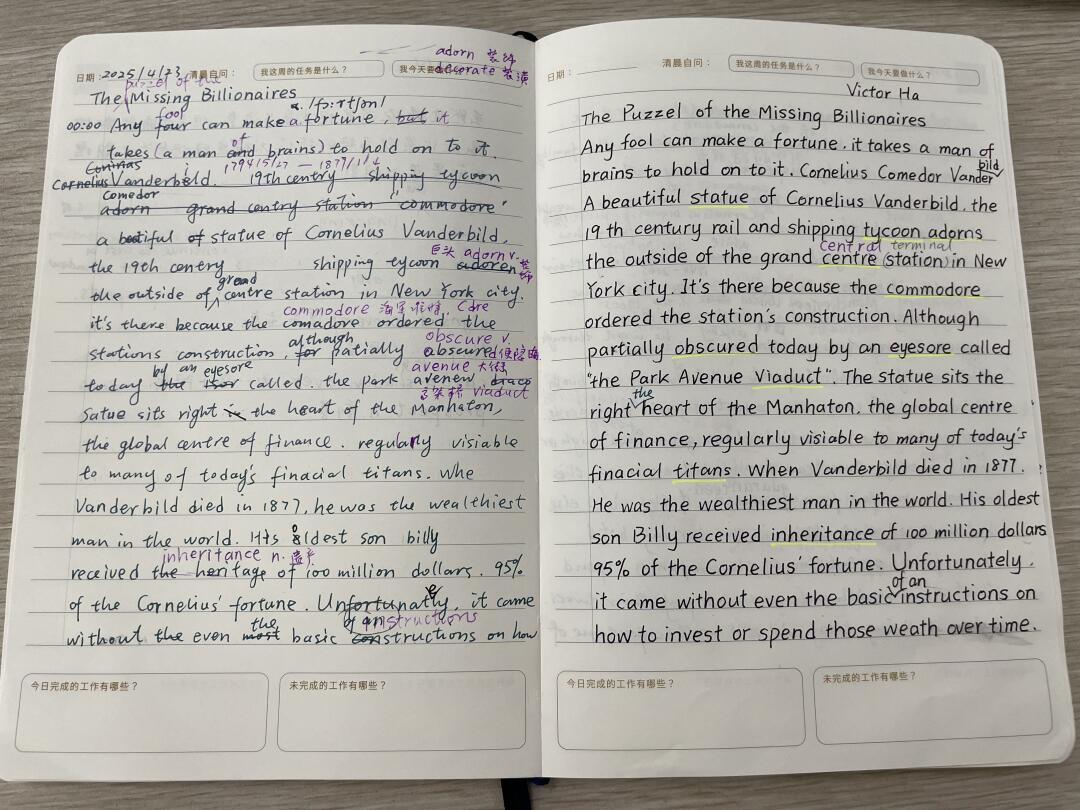 adorn 装饰
decorate 装潢
日期: 2025/4/23 清晨自问: 我这周的任务是什么? 我今天要做什么?
puzzel of the
The Missing Billionaires
fool n. /fɔːrtʃən/
00:00 Any four can make a fortune, but it
of
takes (a man and brains) to hold on to it.
1794/5/27 — 1877/1/4
Cornelius Vanderbild. 19th centry shipping tycoon
comedor
adorn grand centry station 'commodore'
a beatiful of statue of Cornelius Vanderbild,
巨头 adorn v. 装饰
the 19th centery shipping tycoon adoren
grand
the outside of centre station in New York city.
commodore 海军准将
it's there because the comadore ordered the
although obscure v.
stations construction, for patially obscured 使阴暗
by an eyesore avenue 大街
today the called. the park avenew draco
高架桥 viaduct
Satue sits right in the heart of the Manhaton,
the global centre of finance. regularly visiable
to many of today's finacial titans. Whe
Vanderbild died in 1877, he was the wealthiest
man in the world. His oldest son billy
inheritance n. 遗产
received the heritage of 100 million dollars. 95%
of the Cornelius' fortune. Unfortunatly, it came
the of an instructions
without the even most basic constructions on how
今日完成的工作有哪些? 未完成的工作有哪些?
日期: 清晨自问: 我这周的任务是什么? 我今天要做什么?
Victor Ha
The Puzzel of the Missing Billionaires
Any fool can make a fortune. it takes a man of
brains to hold on to it. Cornelius Comedor Vanderbild
A beautiful statue of Cornelius Vanderbild. the
19th century rail and shipping tycoon adorns
central terminal
the outside of the grand centre (station) in New
York city. It's there because the commodore
ordered the station's construction. Although
partially obscured today by an eyesore called
"the Park Avenue Viaduct". The statue sits the
the
right heart of the Manhaton, the global centre
of finance, regularly visiable to many of today's
finacial titans. When Vanderbild died in 1877.
He was the wealthiest man in the world. His oldest
son Billy received inheritance of 100 million dollars
95% of the Cornelius' fortune. Unfortunately.
of an
it came without even the basic instructions on
how to invest or spend those weath over time.
今日完成的工作有哪些? 未完成的工作有哪些?